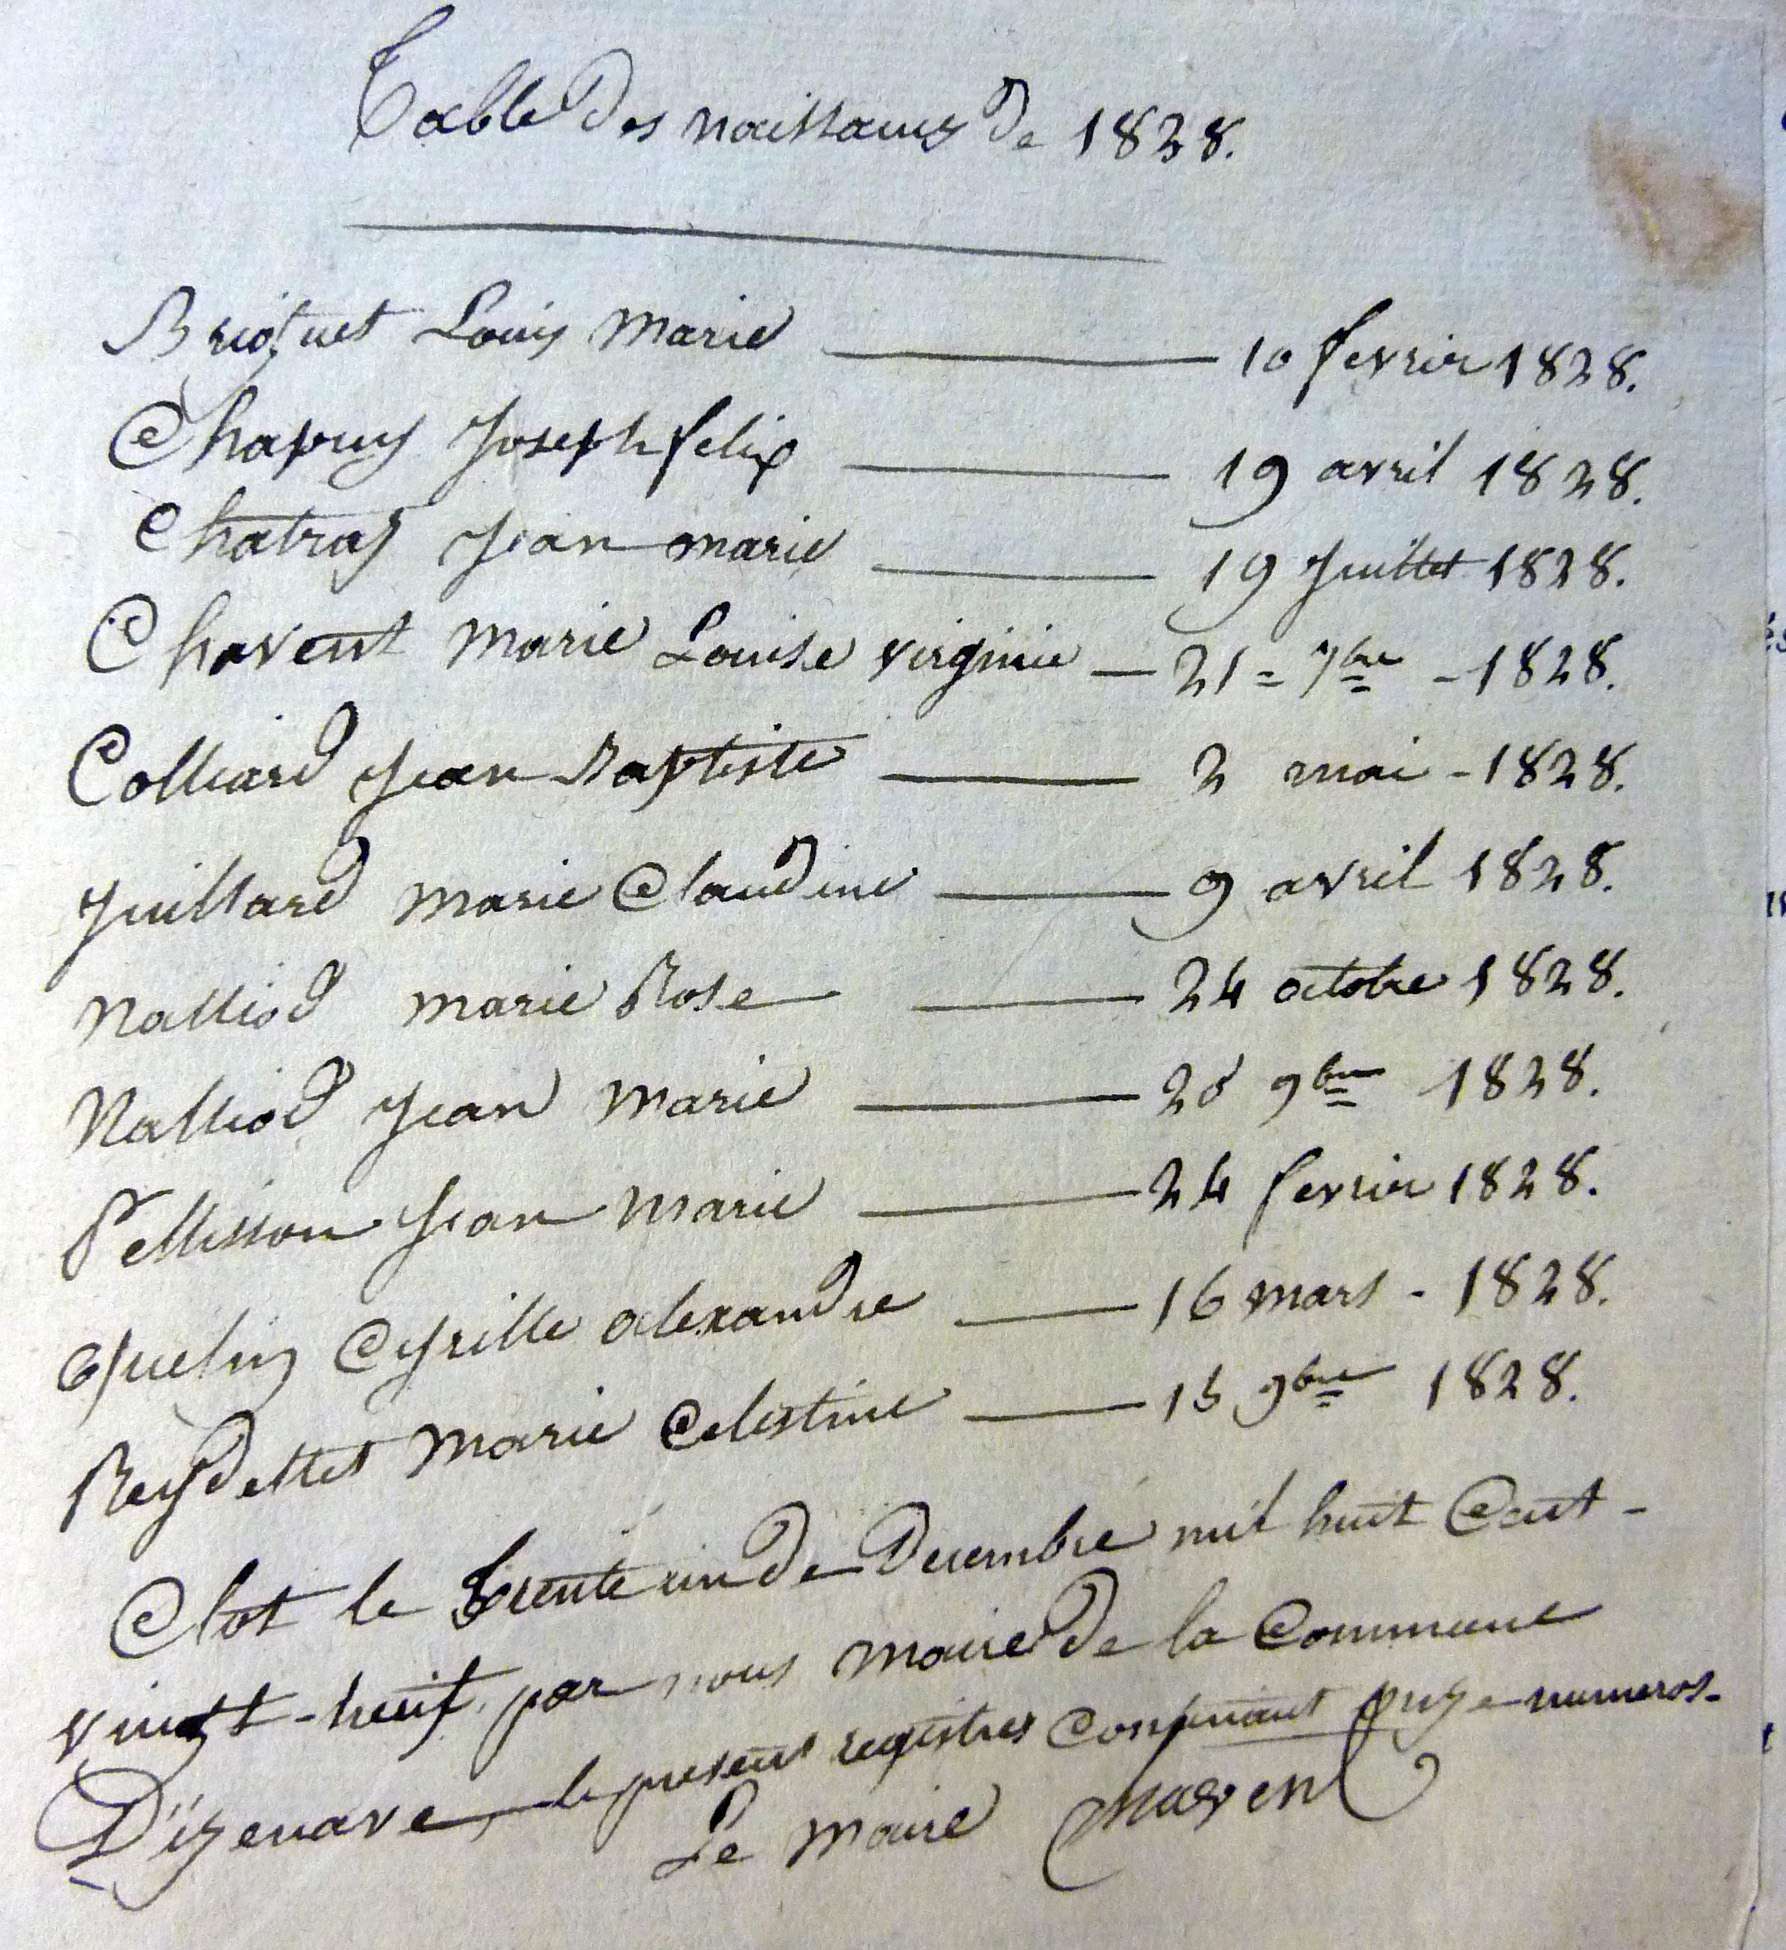 Table des naissances de 1828.
Brioquet Louis Marie 10 fevrier 1828.
Chapuy Joseph felix 19 avril 1828.
Chatray Jean marie 19 Juillet 1828.
Chavent Marie Louise virginie - 21 = 7bre - 1828.
Colliard Jean Baptiste 2 mai - 1828.
Juillard Marie Claudine 9 avril 1828.
Nalliod Marie Rose 24 octobre 1828.
Nalliod Jean Marie 9bre 1828.
Pellisson Jean Marie 24 fevrier 1828.
Cyrille alexandre 16 mars - 1828.
Reydellet Marie Celestine 15 9bre 1828.
Clot le trente un de Decembre mil huit Cent -
vingt-huit par nous Maire de la Commune
D'izenave, le present registres Contenant onze numeros.
Le Maire Chavent